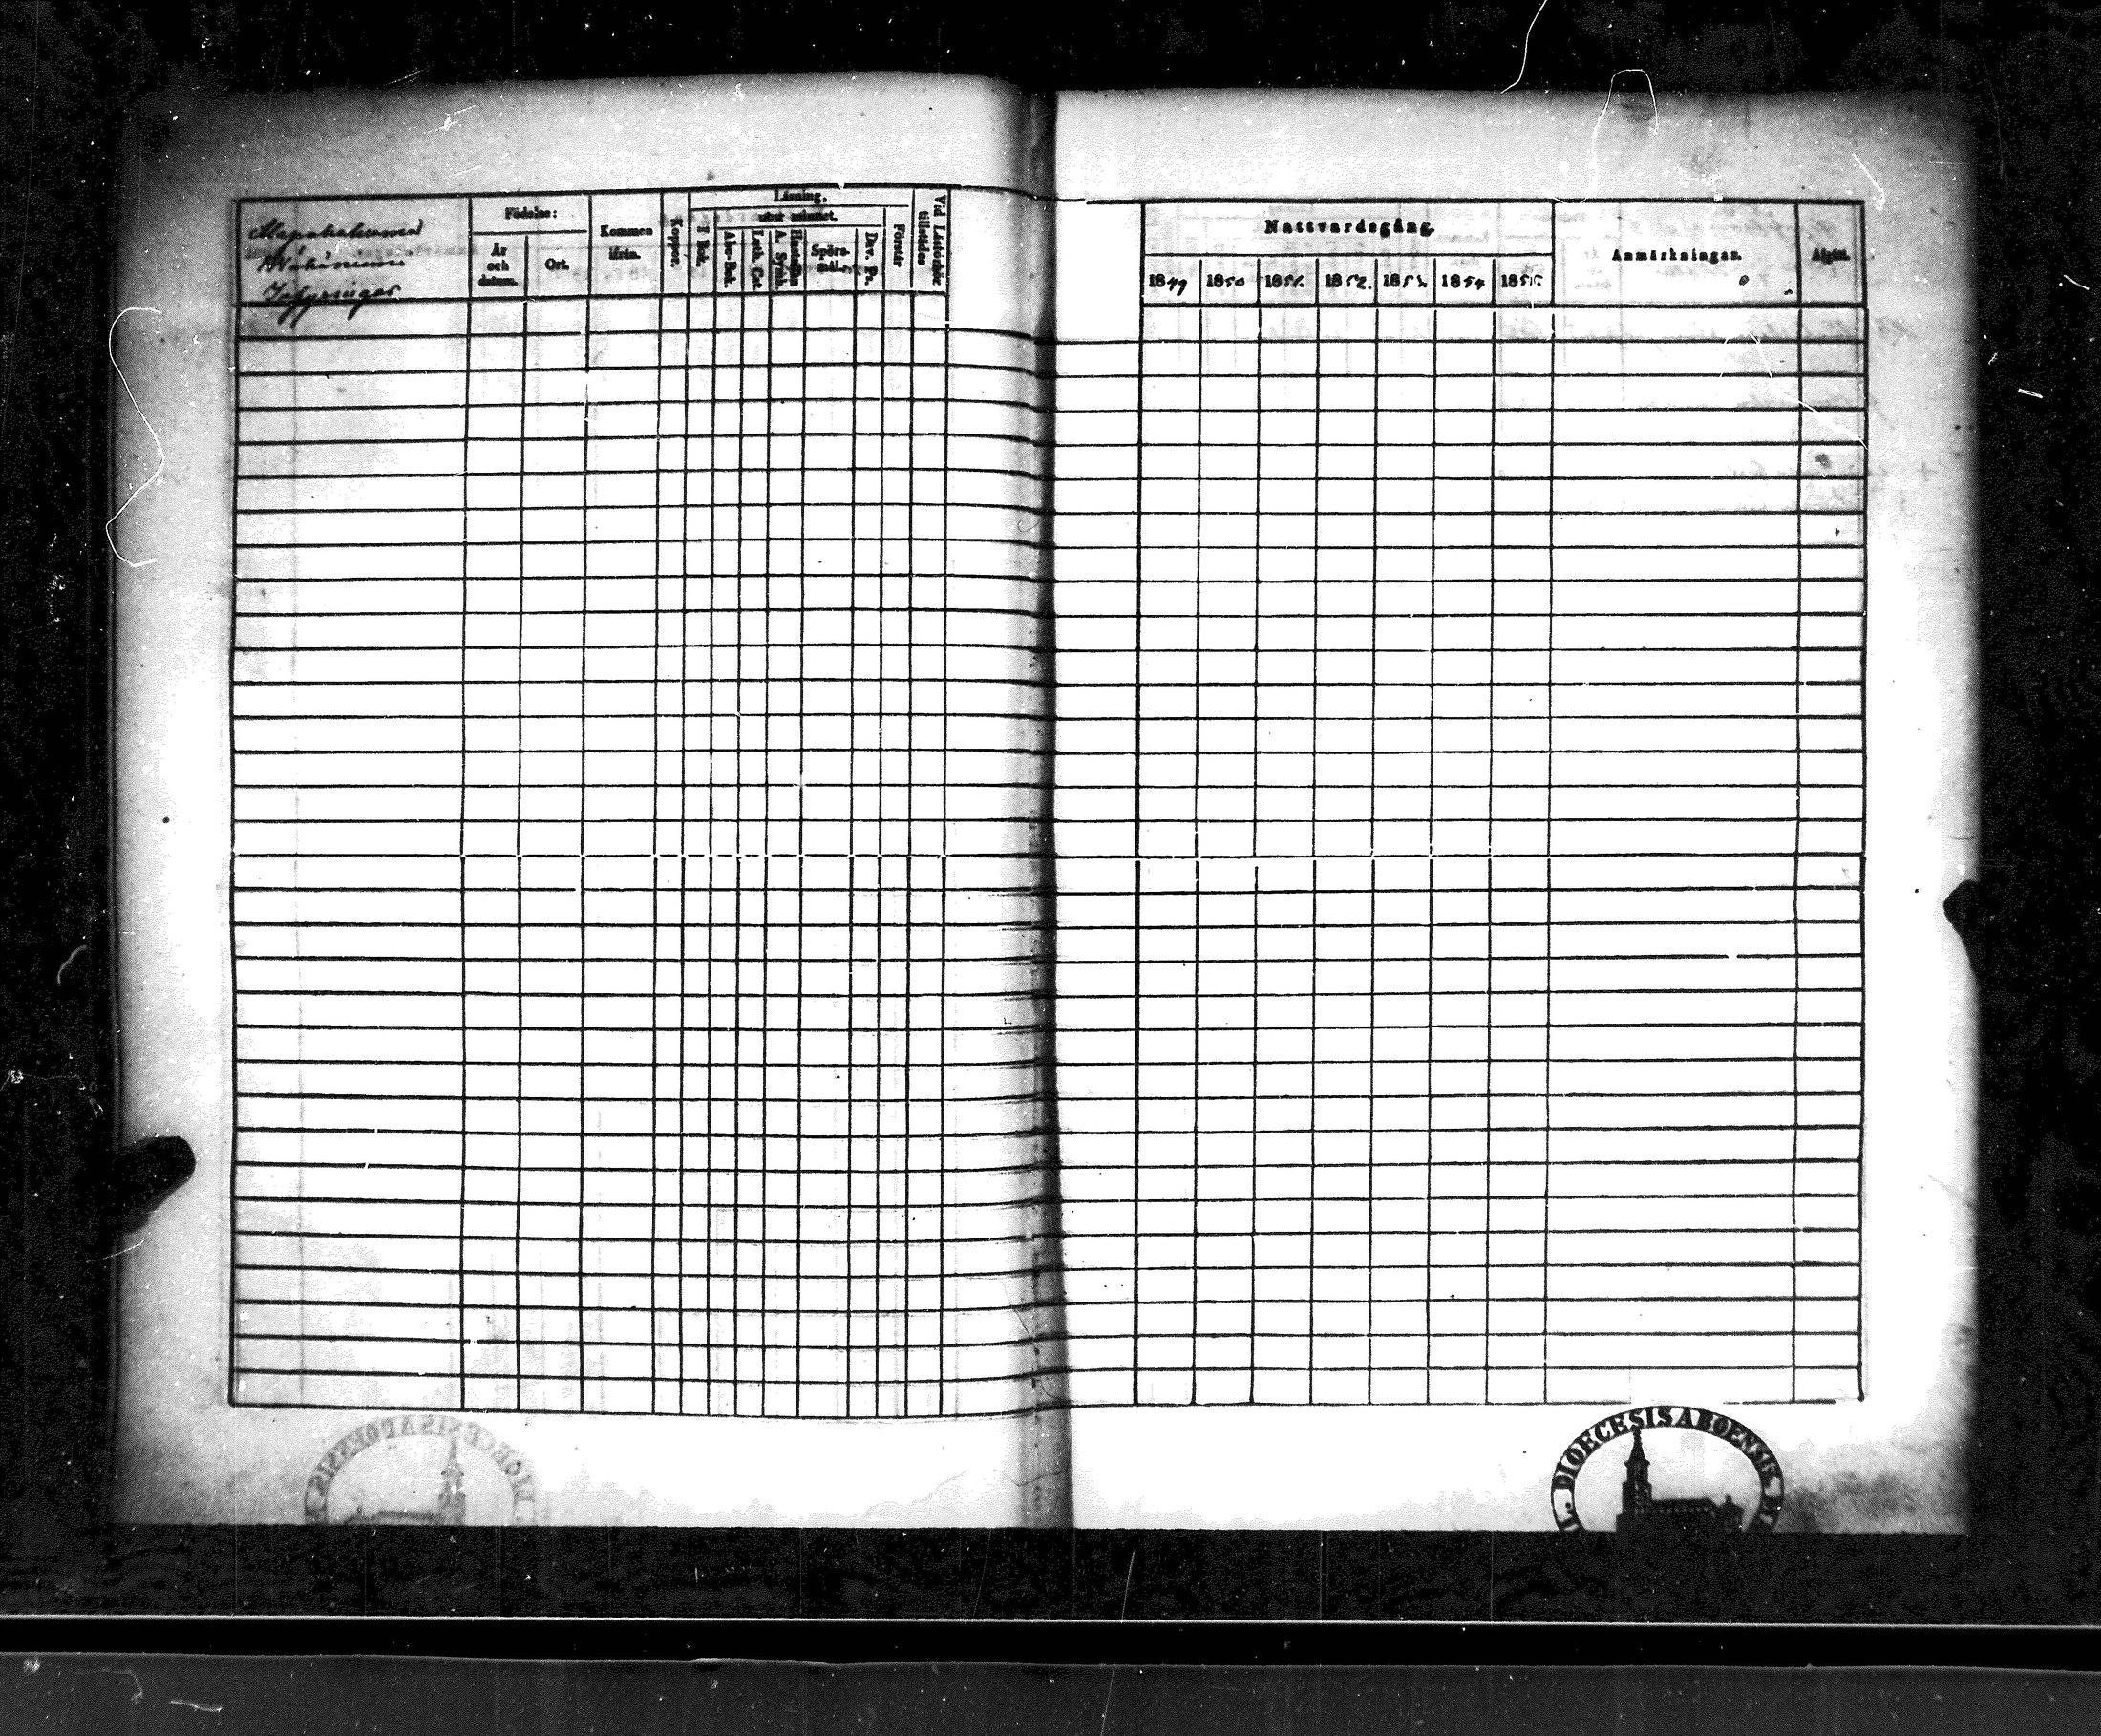 Födelse:
År
och
datum.
Ort.
Kommen
ifrån.
Koppor.
Läsning,
utur minnet.
I Bok.
Abc-Bok.
Luth. Cat.
Hustaflan
A. Symb.
Spörs-
mål.
Dav. Ps.
Förstår
Vid Läsförhör
tillstädes
Nattvardsgång.
1849
1850
1851.
1852.
1853.
1854
1855.
Anmärkningar.
Afgått.
DIOECESIS ABOENSIS